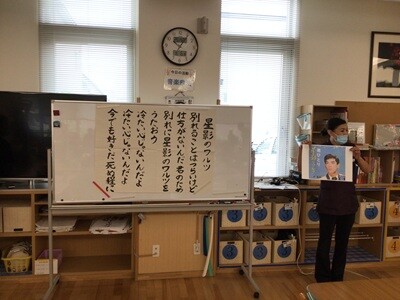 星影のワルツ
別れることはつらいけど
仕方がないんだ君のため
別れに星影のワルツを
うたおう
冷たい心じゃないんだよ
冷たい心じゃないんだよ
今でも好きだ死ぬ程に